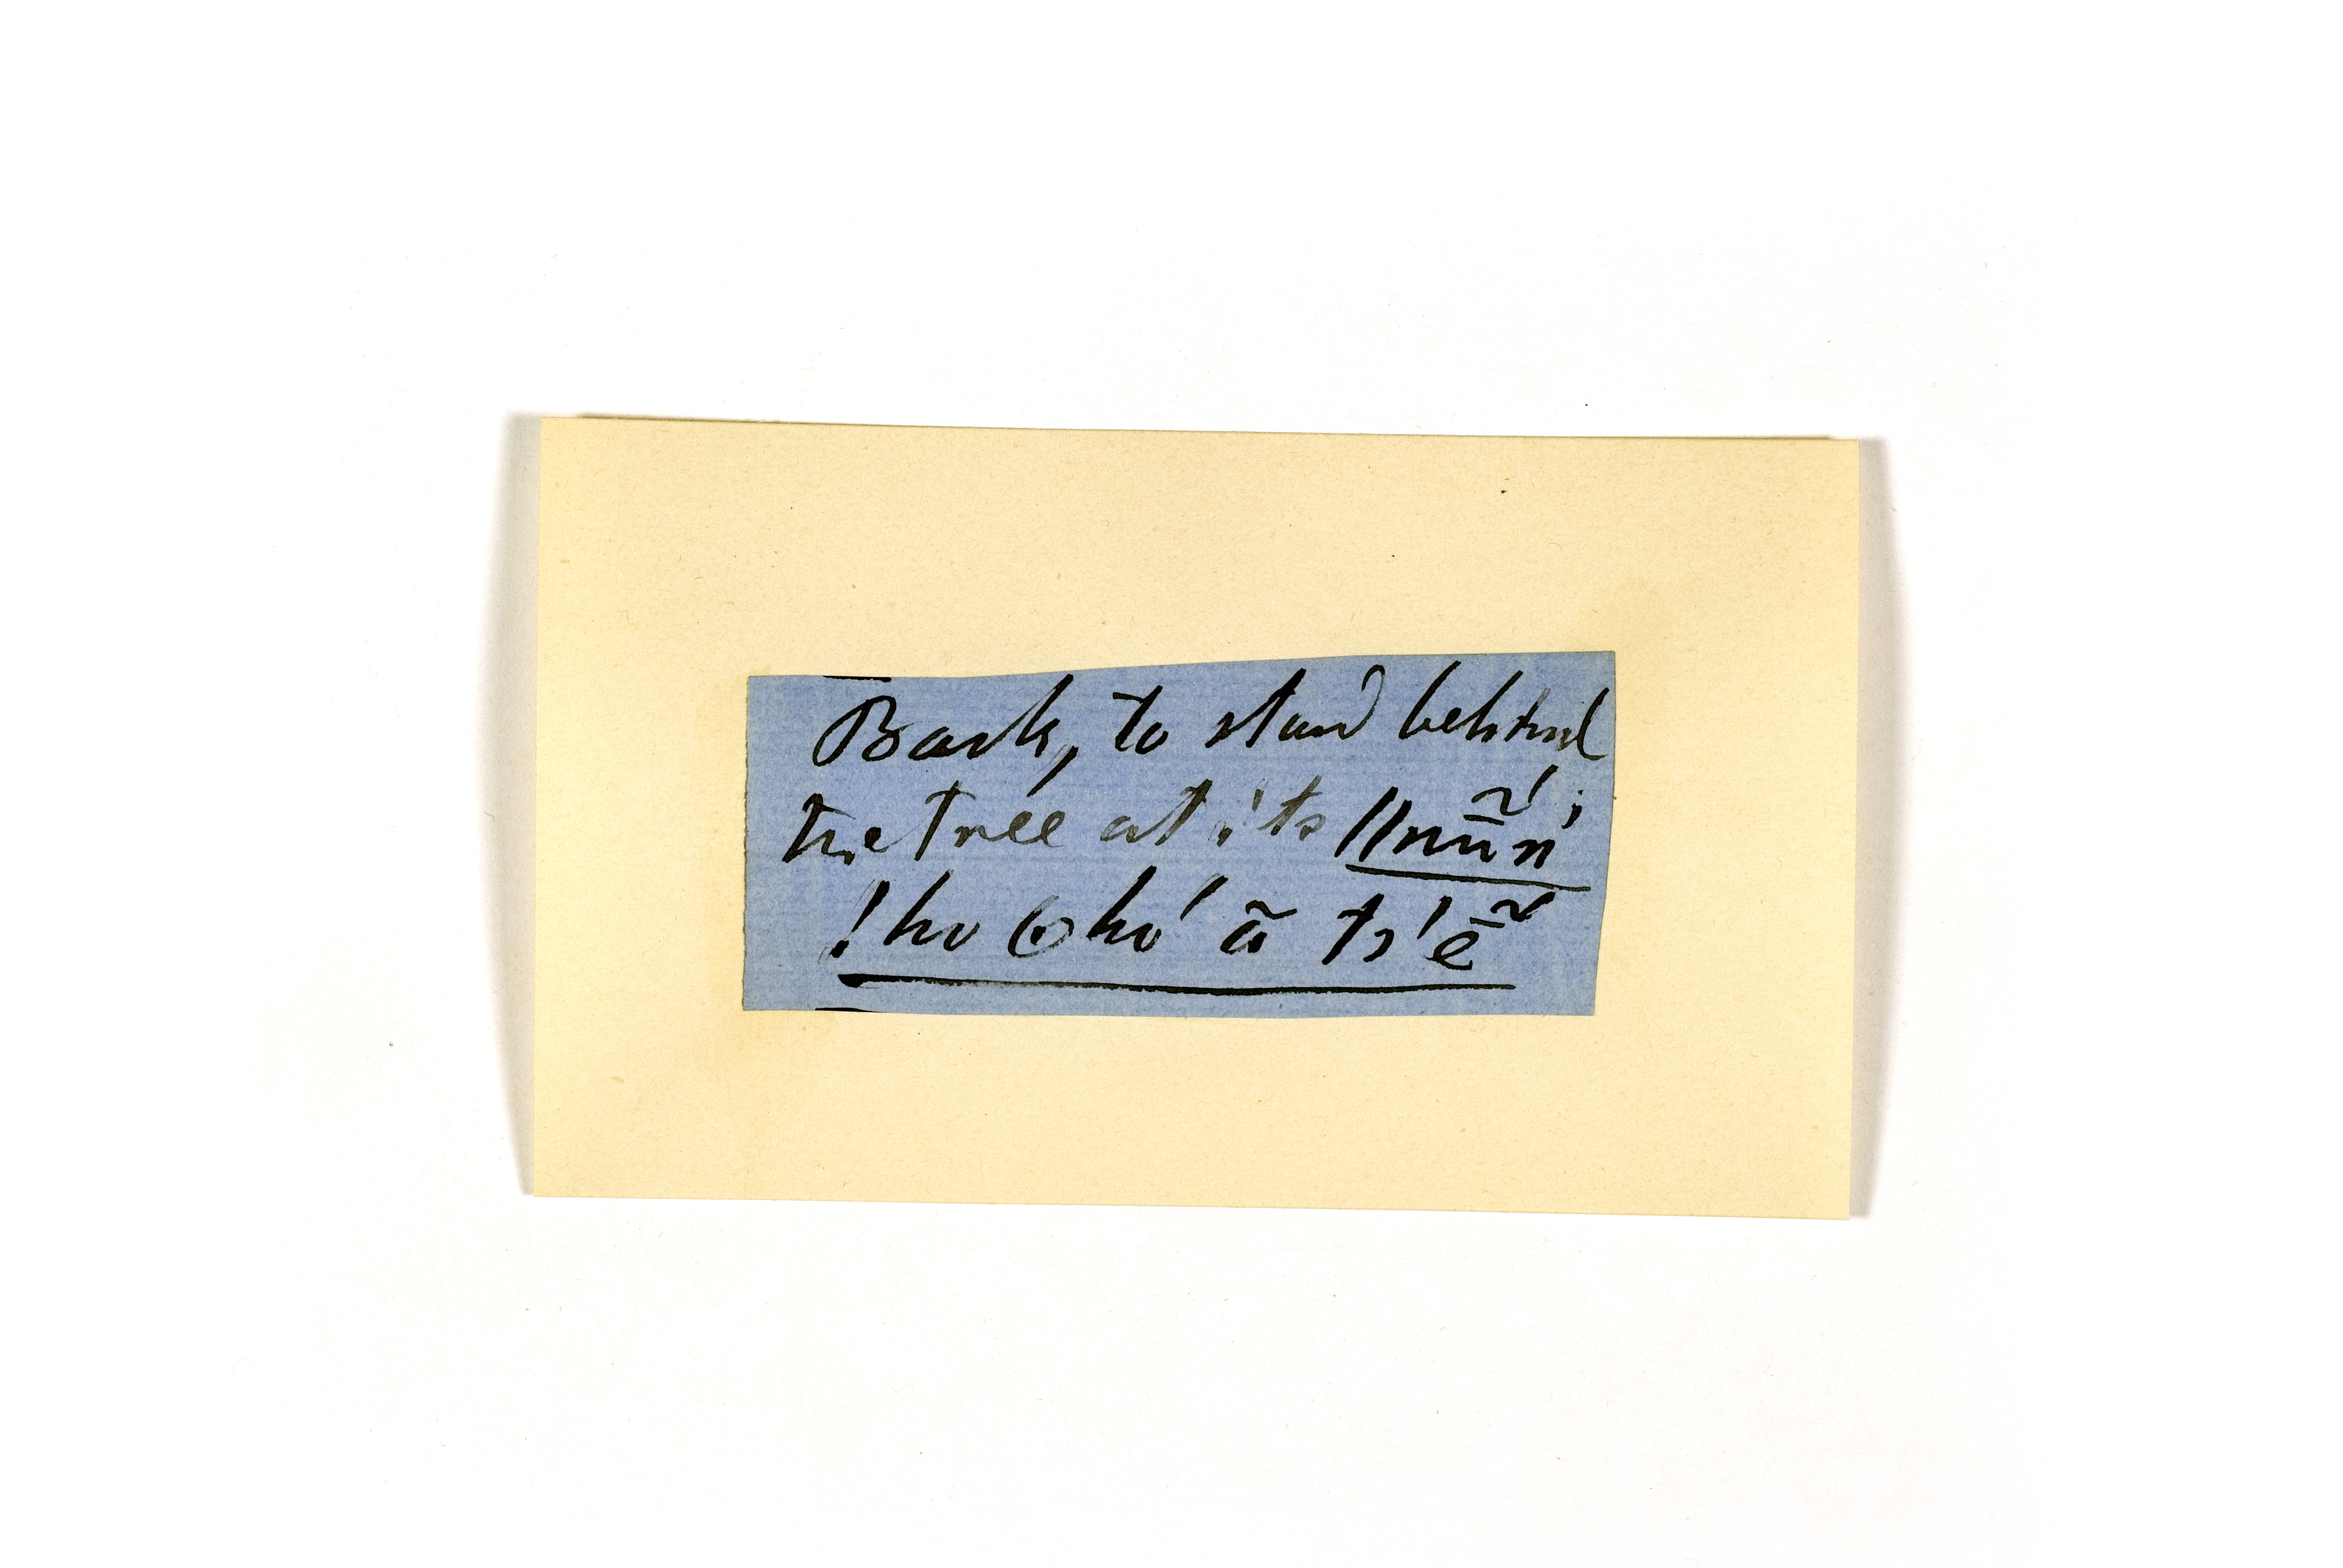 Back, to stand behind
the tree at its ǁnũ̱ń;
!hu ʘhó ã ts'ḛ̃